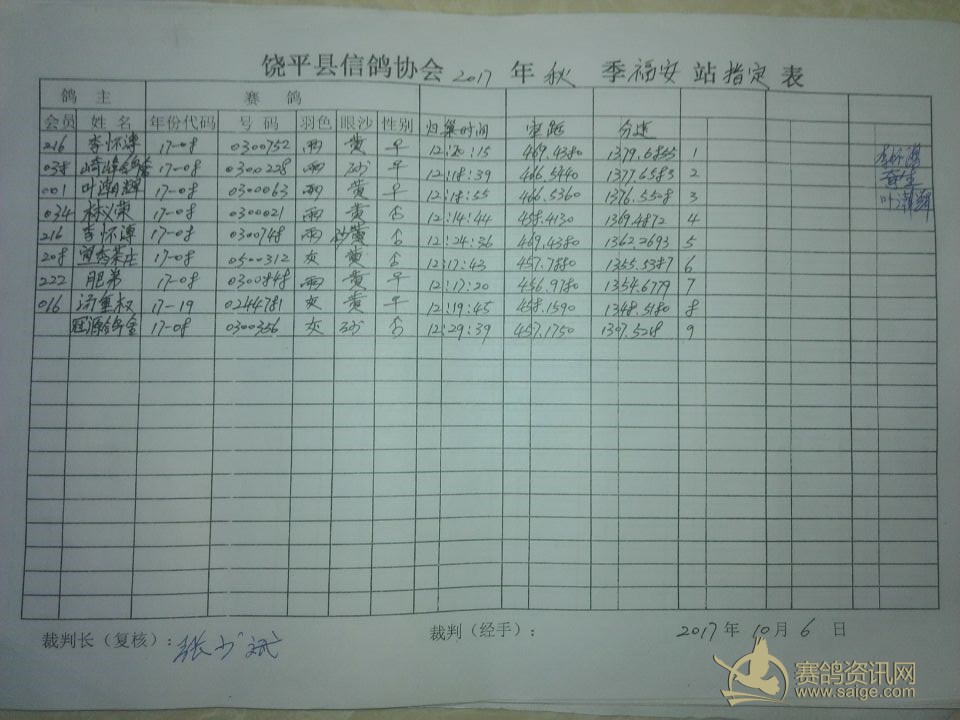 饶平县信鸽协会 2017 年 秋 季 福安 站 指定 表
鸽 主 赛 鸽
会员 姓 名 年份代码 号 码 羽色 眼沙 性别 归巢时间 空距 分速
216 李怀溥 17-08 0300752 雨 黄 12:20:15 469.4380 1379.6855 1
038 17-08 0300228 雨 砂 12:18:39 466.5440 1377.6583 2
001 叶潮辉 17-08 0300063 雨 黄 12:18:55 466.5360 1376.5508 3
034 林义荣 17-08 0300021 雨 黄 ♂ 12:14:44 458.4130 1369.4872 4
216 李怀溥 17-08 0300748 雨 砂黄 ♂ 12:24:36 469.4380 1362.2693 5
208 茶庄 17-08 0500312 灰 黄 ♂ 12:17:43 457.7880 1355.5387 6
222 肥弟 17-08 0300848 雨 黄 12:17:20 456.9780 1354.6779 7
016 汤重权 17-19 0244781 灰 黄 12:19:45 458.1590 1348.5180 8
冠源鸽舍 17-08 0300356 灰 砂 ♂ 12:29:39 457.1750 1307.528 9
李怀溥
叶潮辉
裁判长（复核）： 张少斌 裁判（经手）： 2017 年 10 月 6 日
赛鸽资讯网
www.saige.com